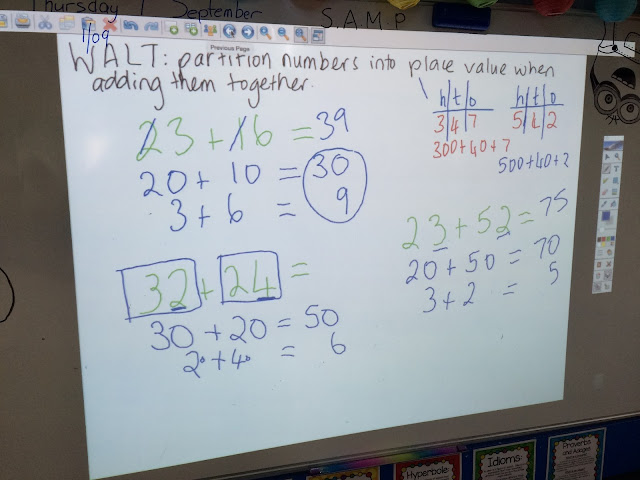 Thursday 1 September S.A.M.P
1/09
Previous Page
WALT: partition numbers into place value when
adding them together.
23 + 16 = 39
20 + 10 = 30
3 + 6 = 9
32 + 24 =
30 + 20 = 50
2 + 4 = 6
h t o
3 4 7
300 + 40 + 7
h t o
5 4 2
500 + 40 + 2
23 + 52 = 75
20 + 50 = 70
3 + 2 = 5
Hyperbole
Idioms:
Proverbs
and Adages